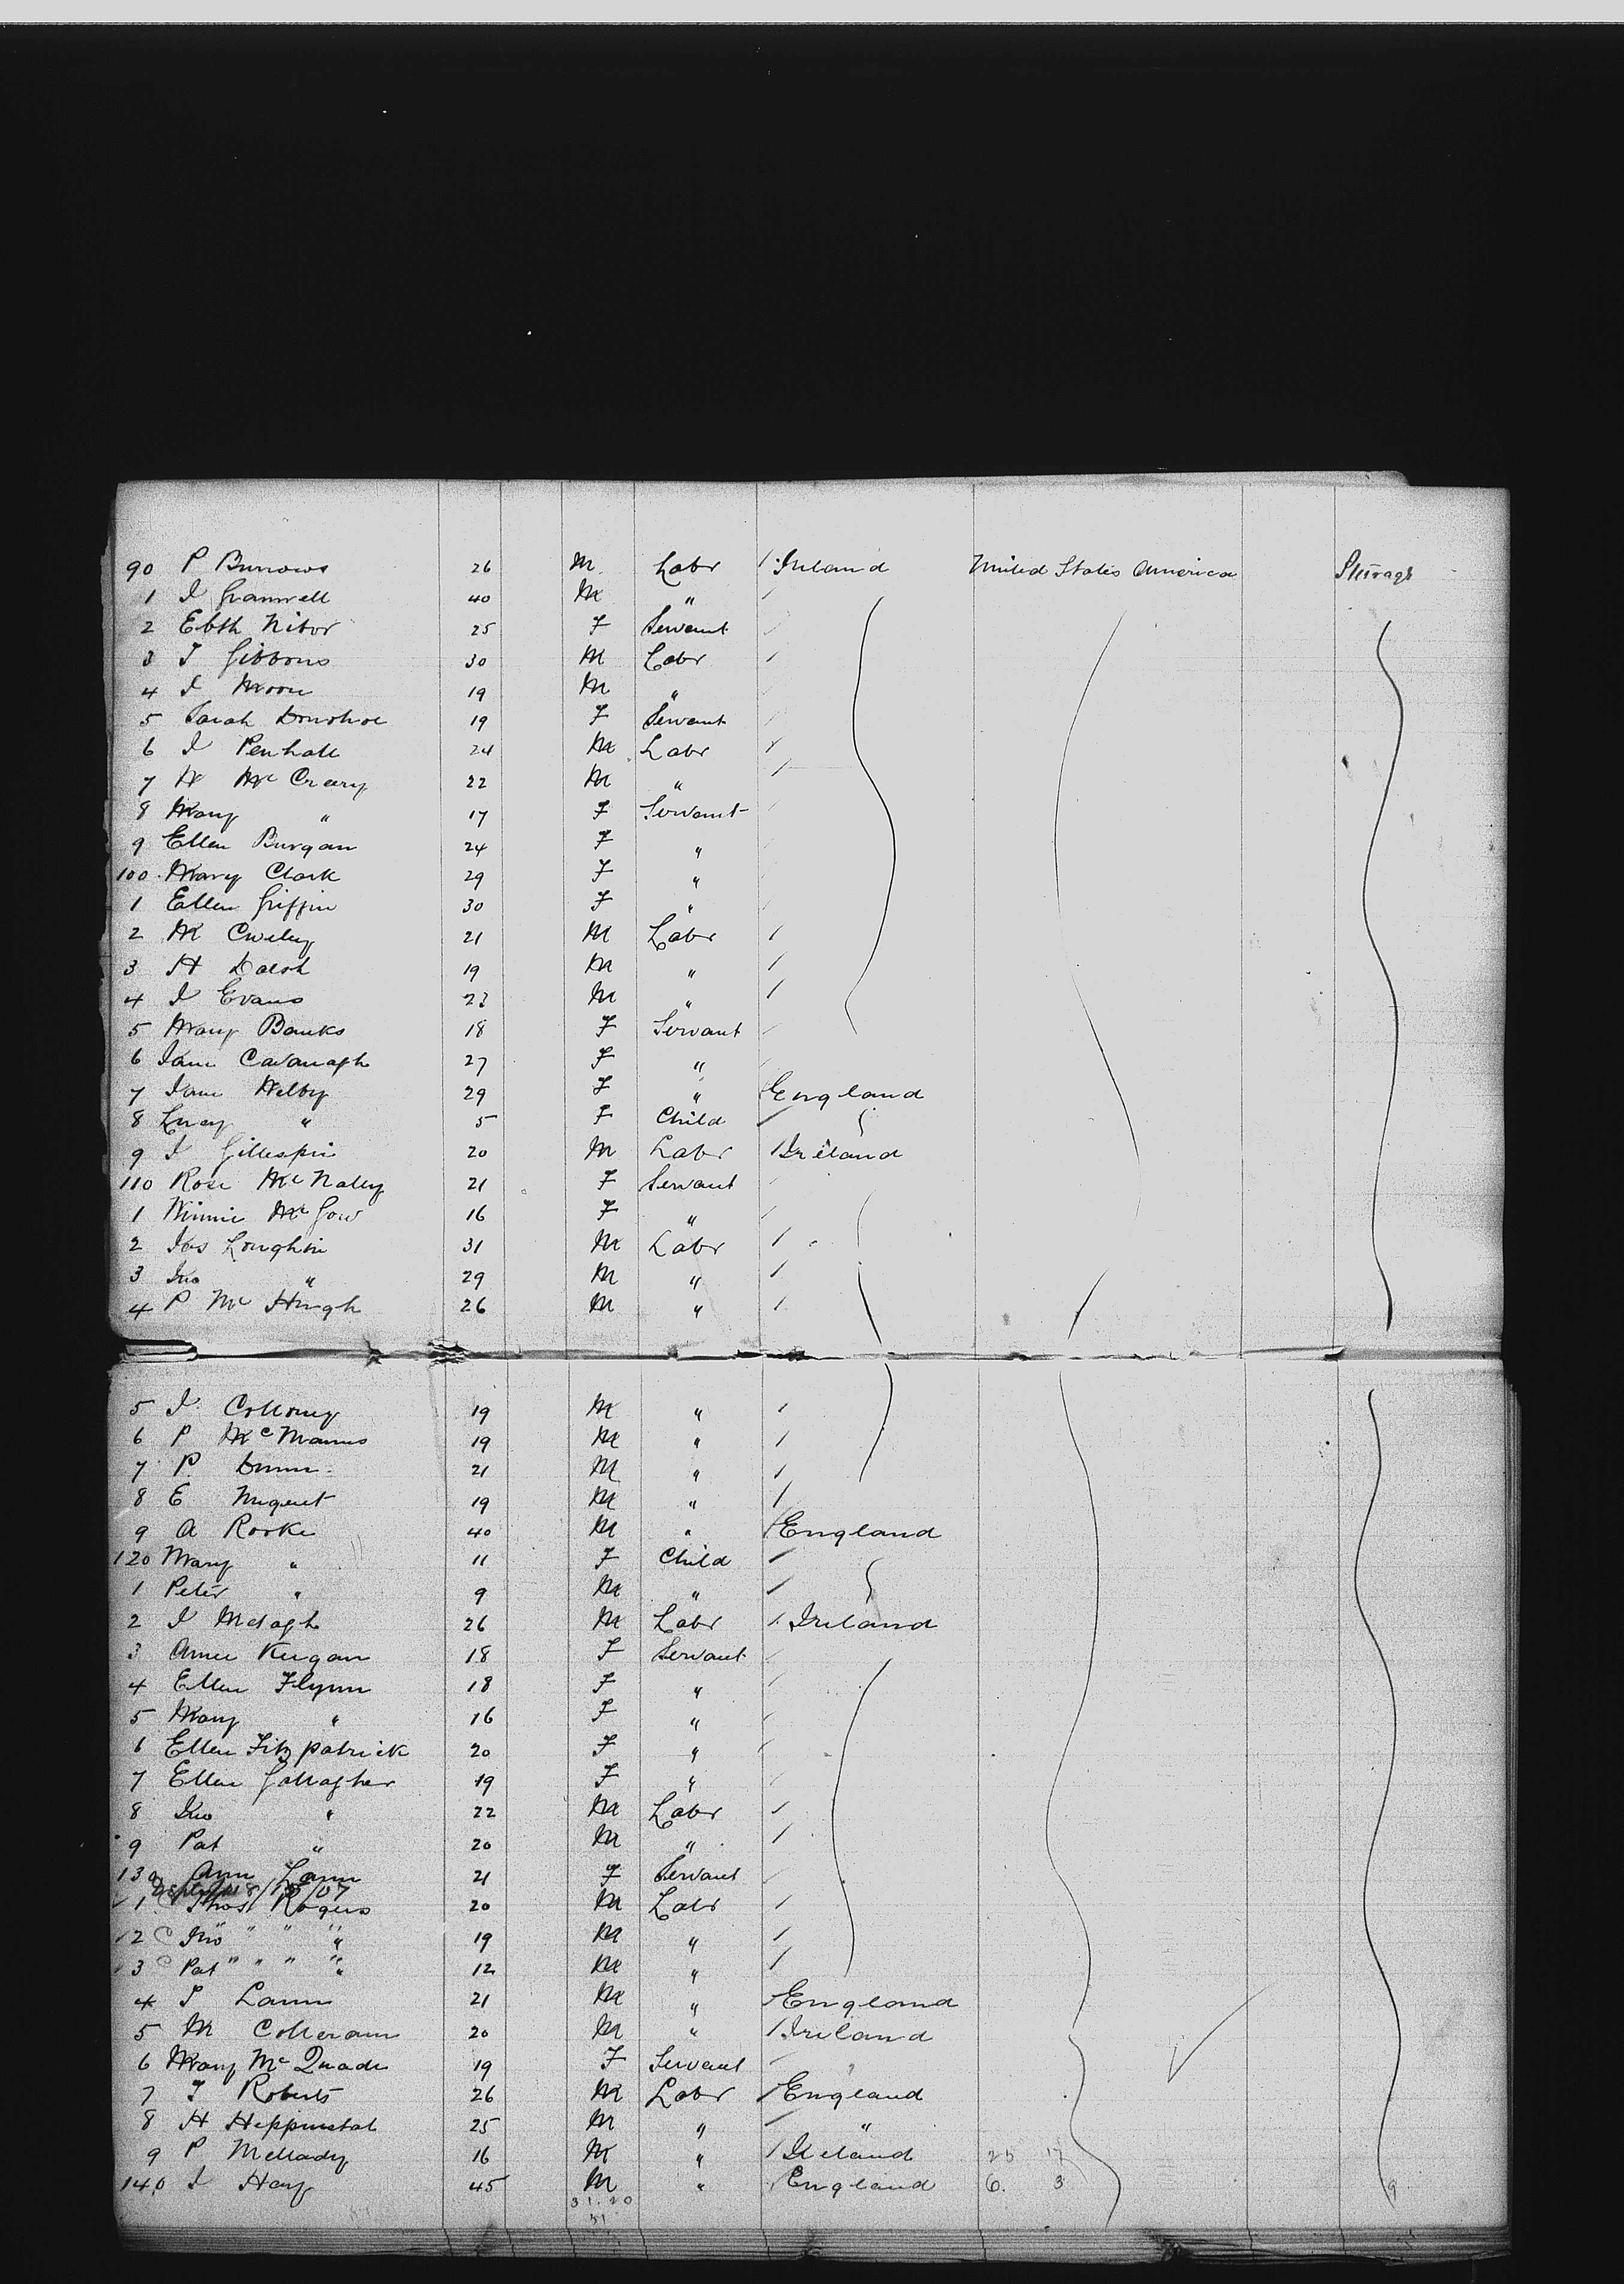 90 P Burrows 26 M. Labr / Ireland United States America Steerage
1 J Gramwell 40 M " /
2 Ebth Nibor 25 F Servant
3 T Gibbons 30 M Labr /
4 J Moore 19 M "
5 Sarah Donohoe 19 F Servant
6 J Penhall 24 M Labr /
7 W McCreary 22 M " /
8 Mary " 17 F Servant
9 Ellen Burgan 24 F "
100 Mary Clark 29 F "
1 Ellen Griffin 30 F "
2 M 21 M Labr /
3 H Walsh 19 M " /
4 J Evans 23 M " /
5 Mary Banks 18 F Servant
6 Jane Cavanagh 27 F "
7 Jane Welby 29 F " England
8 Lucy " 5 F Child /
9 J Gillespie 20 M Labr / Ireland
110 Rose McNally 21 F Servant
1 Winnie McGow 16 F "
2 Jas Loughlin 31 M Labr /
3 Jno " 29 M " /
4 P McHugh 26 M " /
5 J 19 M " /
6 P McManus 19 M " /
7 P. Dunn 21 M " /
8 E Nugent 19 M " /
9 A Rorke 40 M " / England
120 Mary " 11 F Child /
1 Peter " 9 M " /
2 J 26 M Labr / Ireland
3 Annie Keegan 18 F Servant
4 Ellen Flynn 18 F "
5 Mary " 16 F "
6 Ellen Fitzpatrick 20 F "
7 Ellen Gallagher 19 F "
8 Jno " 22 M Labr /
9 Pat " 20 M " /
130 Ann Lamm 21 F Servant
1 Thos Rogers 20 M Labr /
2 C Jno " " " " 19 M " /
3 C Pat " " " " 12 M " /
4 T Lamm 21 M " / England
5 M Colleram 20 M " / Ireland
6 Mary McQuade 19 F Servant "
7 T Roberts 26 M Labr / England
8 H Heppinstal 25 M " / "
9 P Mellady 16 M " / Ireland 25 17
140 J Hay 45 M " / England 6. 3 9
31. 20
51